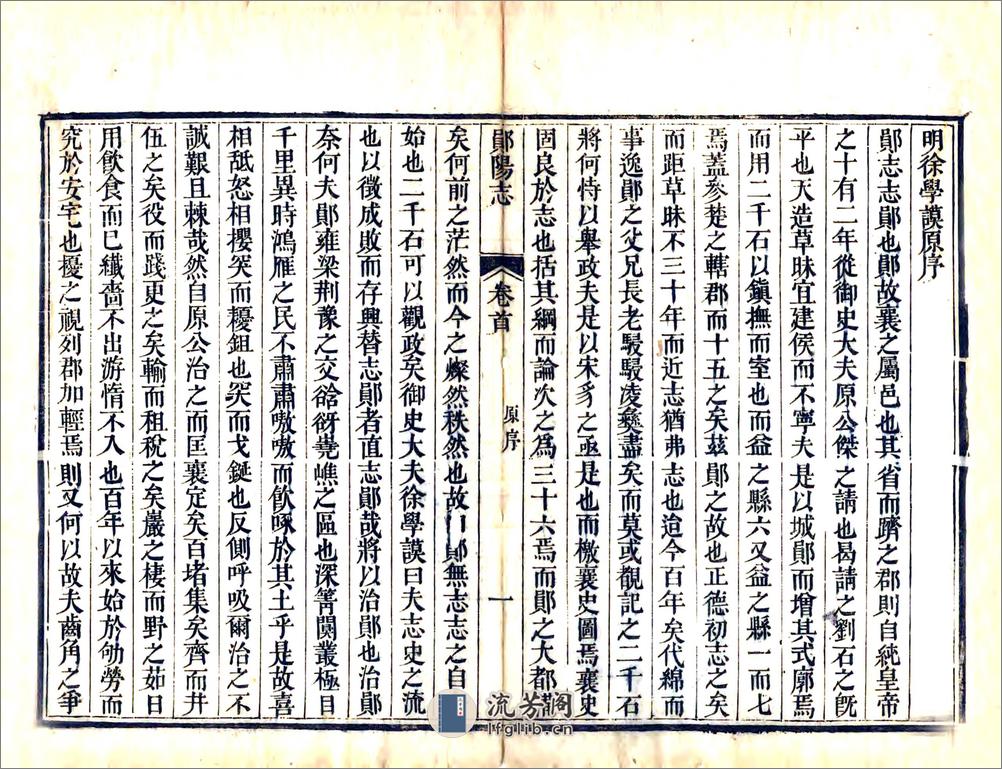 明徐學謨原序
鄖志志鄖也鄖故襄之屬邑也其省而躋之郡則自純皇帝
之十有二年從御史大夫原公傑之請也曷請之劉石之旣
平也天造草昧宜建侯而不寧夫是以城鄖而增其式廓焉
而用二千石以鎭撫而室也而益之縣六又益之縣一而七
焉蓋參楚之轄郡而十五之矣茲鄖之故也正德初志之矣
而距草昧不三十年而近志猶弗志也迨今百年矣代綿而
事逸鄖之父兄長老駸駸凌彝盡矣而莫或覩記之二千石
將何恃以舉政夫是以宋豸之亟是也而檄襄史圖焉襄史
固良於志也括其綱而論次之爲三十六焉而鄖之大都
鄖陽志
卷首
原序
一
矣何前之茫然而今之燦然秩然也故曰鄖無志志之自
始也二千石可以觀政矣御史大夫徐學謨曰夫志史之流
也以徵成敗而存興替志鄖者直志鄖哉將以治鄖也治鄖
奈何夫鄖雍梁荆豫之交谽谺嶤嶕之區也深箐闃叢極目
千里異時鴻雁之民不肅肅嗷嗷而飮啄於其土乎是故喜
相舐怒相櫻笑而耰鉏也哭而戈鋋也反側呼吸爾治之不
誠艱且棘哉然自原公治之而匡襄定矣百堵集矣齊而井
伍之矣役而踐更之矣輸而租稅之矣巖之棲而野之茹日
用飮食而已纖嗇不出游惰不入也百年以來始於劬勞而
究於安宅也擾之視列郡加輕焉則又何以故夫齒角之爭
流芳閣
lfglib.cn